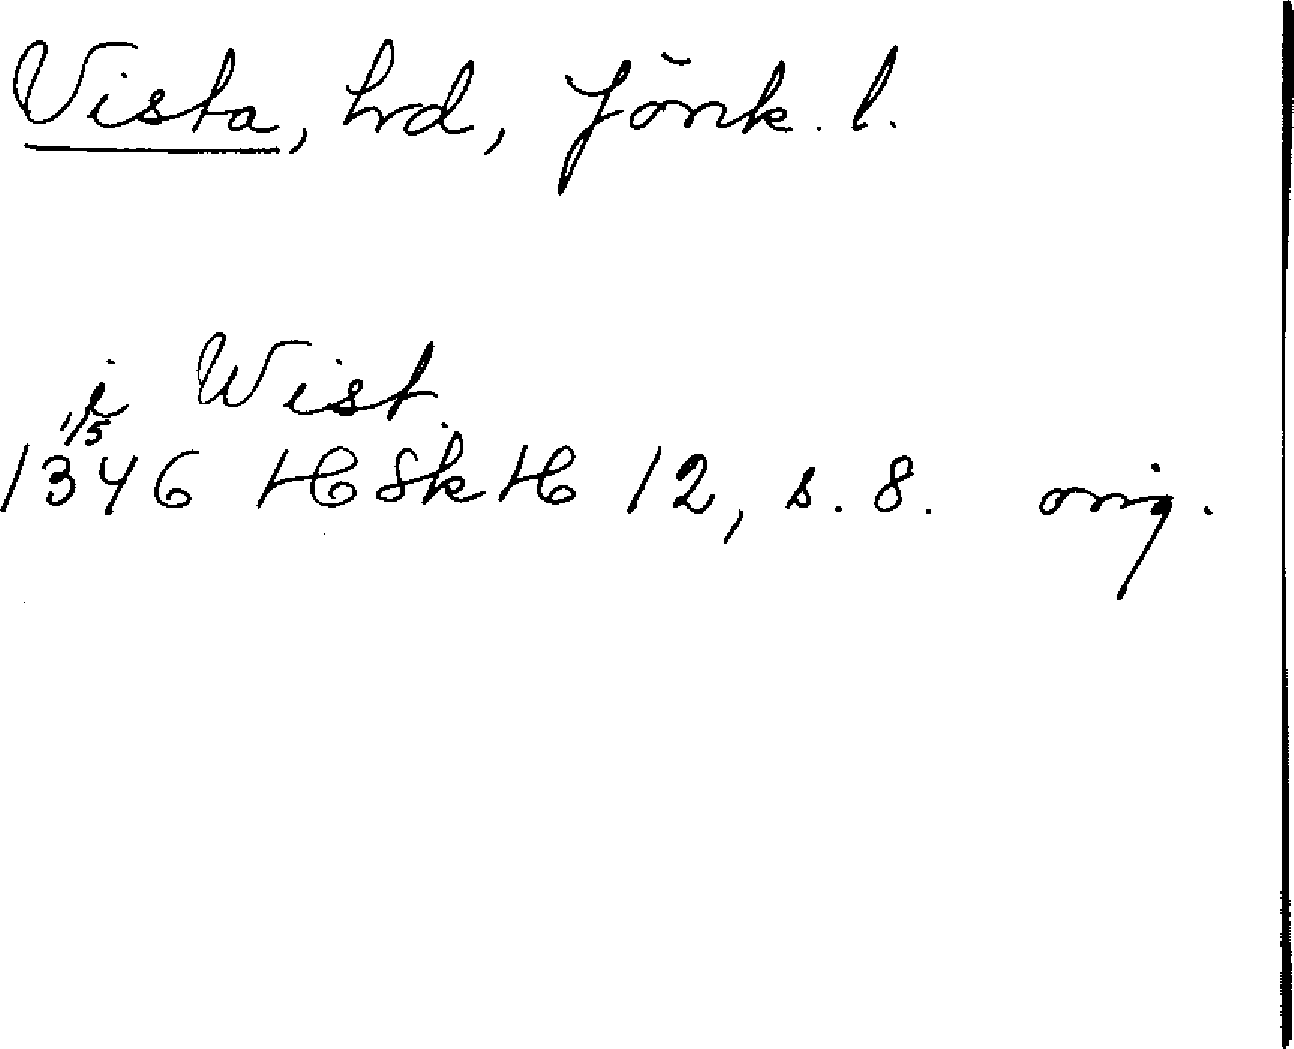 Vista, hrd, Jönk. l.
i Wist.
1/5
1346 HSkH 12, s. 8. orig.